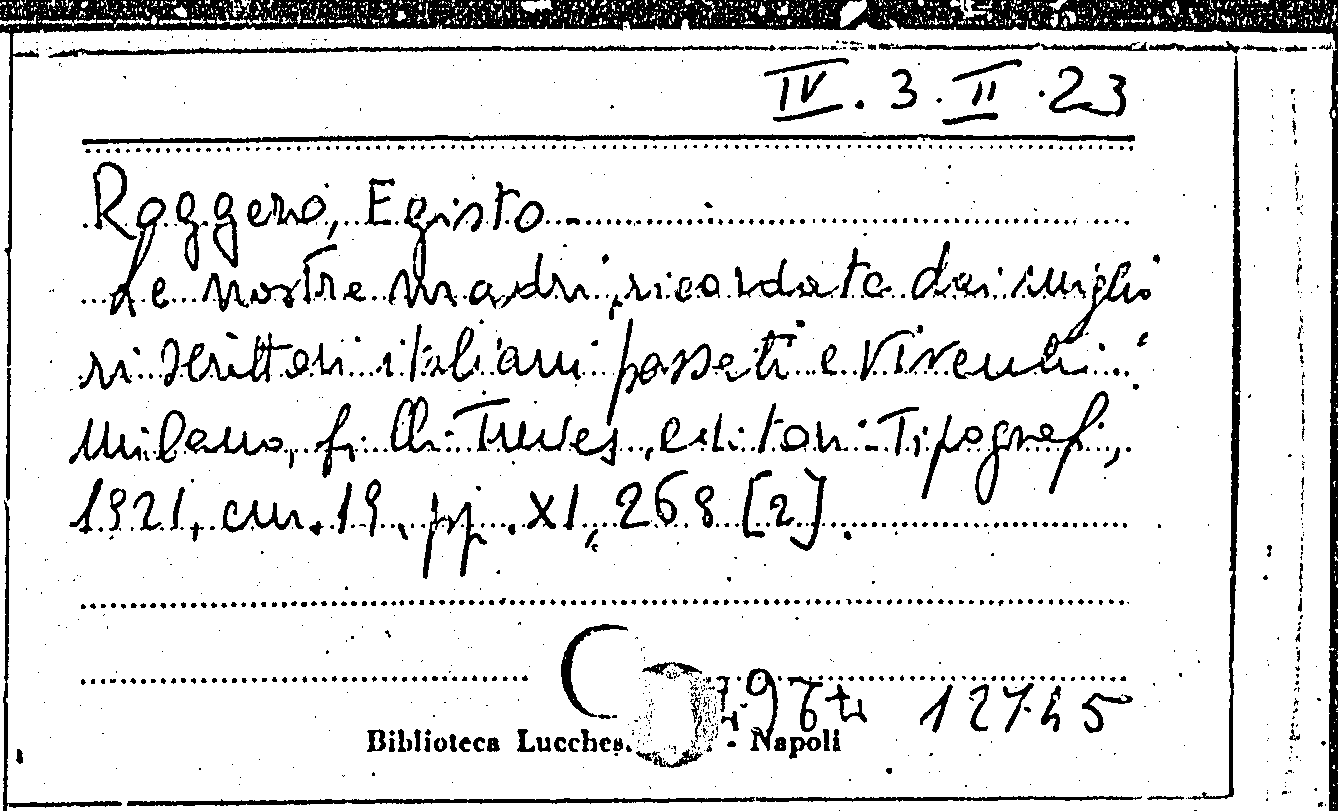 IV. 3. II. 23
Roggero, Egisto -
Le nostre madri, ricordate dai miglio
ri scrittori italiani passati e viventi.
Milano, f.lli Treves, editori-Tipografi,
1921, cm. 19, pp. XI, 268 [2].
12745
Biblioteca - Napoli